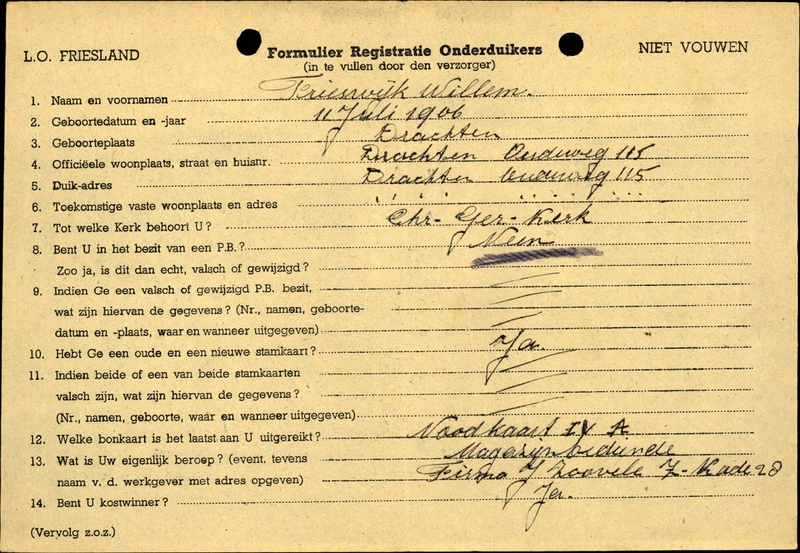 L.O. FRIESLAND
Formulier Registratie Onderduikers
NIET VOUWEN
(in te vullen door den verzorger)
1. Naam en voornamen Frieswijk Willem.
2. Geboortedatum en -jaar 11 Juli 1906
3. Geboorteplaats Drachten
4. Officiëele woonplaats, straat en huisnr. Drachten Oudeweg 115
5. Duik-adres Drachten Oudeweg 115
6. Toekomstige vaste woonplaats en adres " " " "
7. Tot welke Kerk behoort U? Chr- Ger- Kerk
8. Bent U in het bezit van een P.B.? Neen
Zoo ja, is dit dan echt, valsch of gewijzigd?
9. Indien Ge een valsch of gewijzigd P.B. bezit,
wat zijn hiervan de gegevens? (Nr., namen, geboorte-
datum en -plaats, waar en wanneer uitgegeven)
10. Hebt Ge een oude en een nieuwe stamkaart? Ja.
11. Indien beide of een van beide stamkaarten
valsch zijn, wat zijn hiervan de gegevens?
(Nr., namen, geboorte, waar en wanneer uitgegeven)
12. Welke bonkaart is het laatst aan U uitgereikt? Noodkaart A
13. Wat is Uw eigenlijk beroep? (event. tevens Magazijnbediende
naam v. d. werkgever met adres opgeven) Firma J Z-Kade 28
14. Bent U kostwinner? Ja.
(Vervolg z.o.z.)